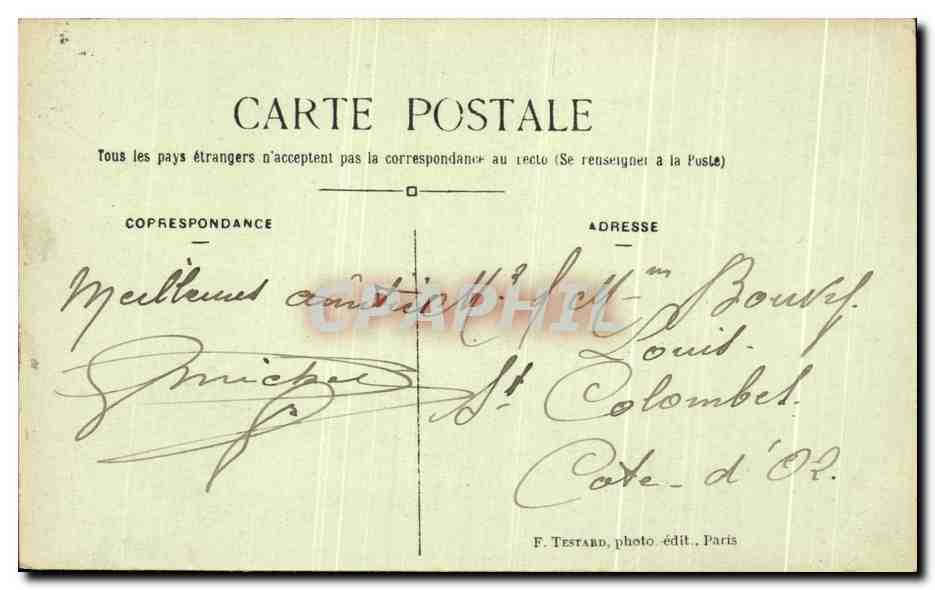 CARTE POSTALE
Tous les pays étrangers n'acceptent pas la correspondance au recto (Se renseigner à la Poste)
CORRESPONDANCE
ADRESSE
Meilleures amitiés
Michel
Mr & Mme Bouvy
Louis.
St Colombes.
Cote-d'Or.
CPAPHIL
F. TESTARD, photo.-édit., Paris